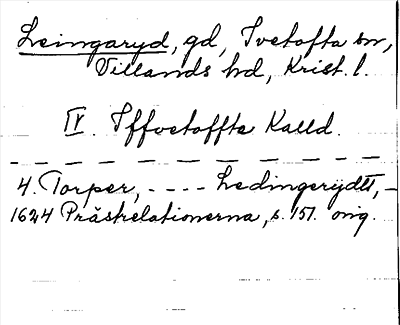 Leingaryd, gd, Ivetofta sn,
Villands hd, Krist. l.
IV. Iffvetoffta Kalld.
4. Torper, - - - - Ledingerydtt, -
1624 Prästrelationerna, s. 151. orig.